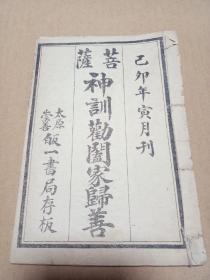 己卯年寅月刊
菩薩
神訓勸闔家歸善
太原崇善
皈一書局存板